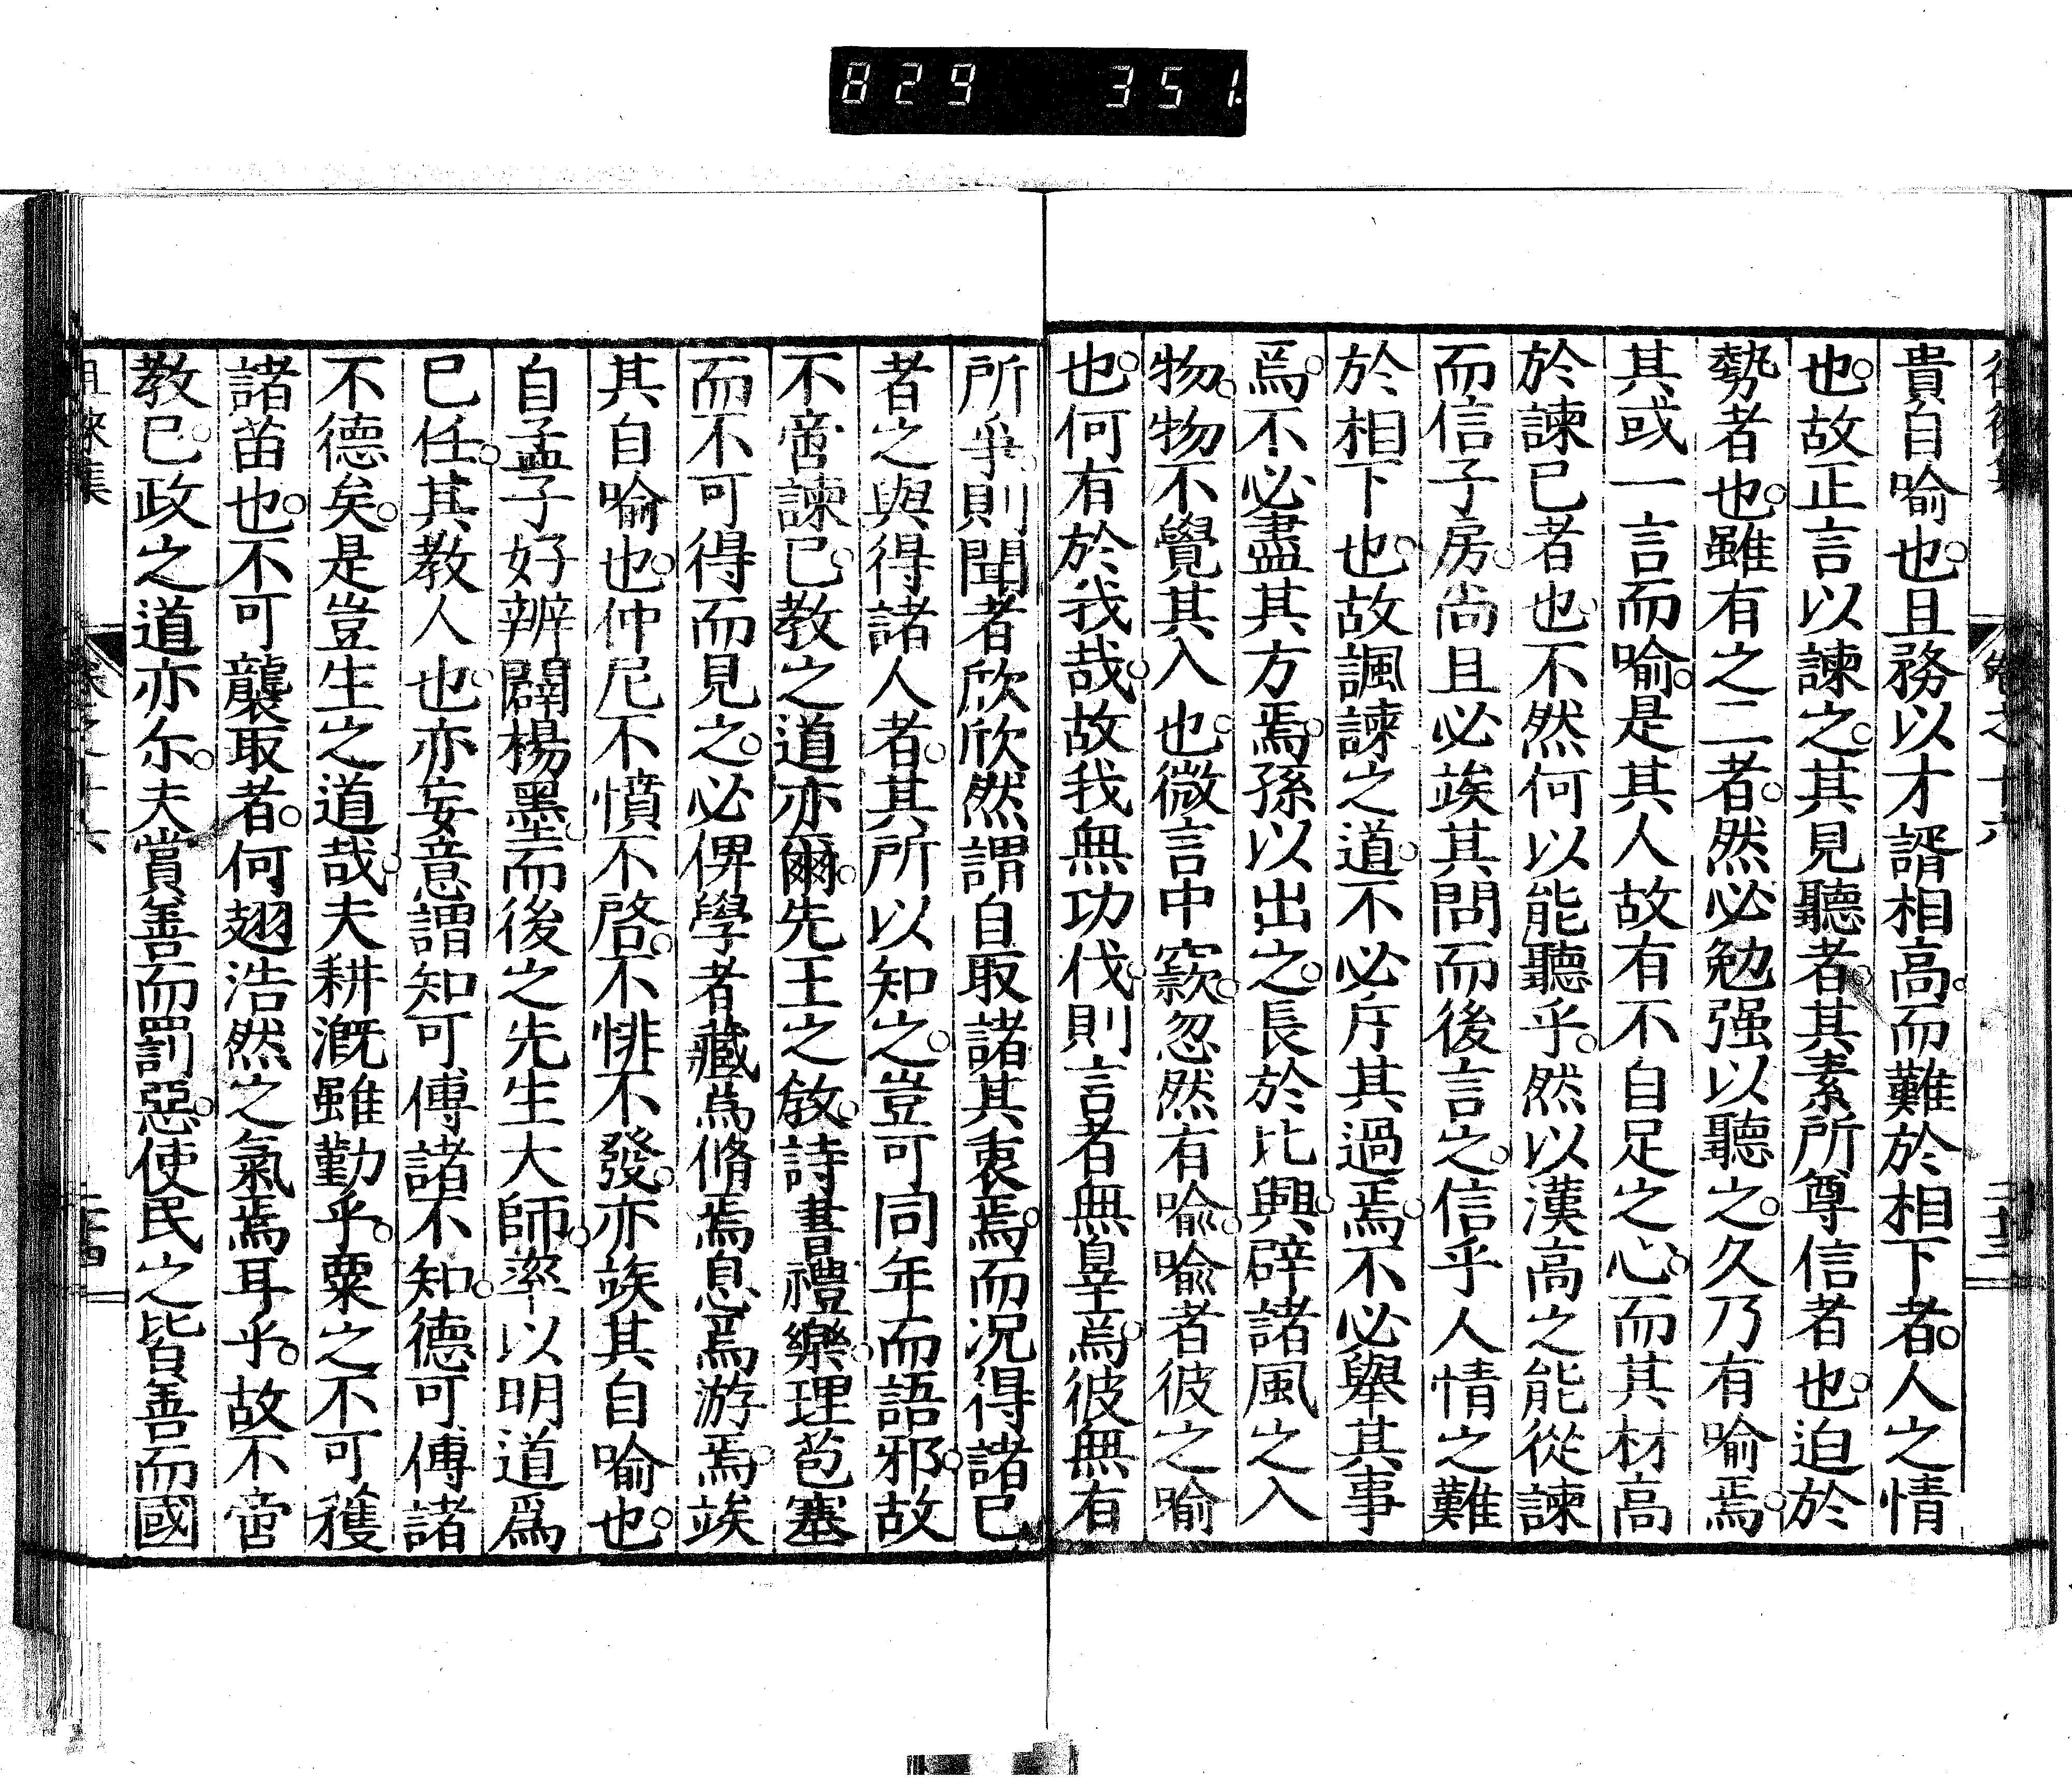 829 351
貴自喻也。且務以才諝相高。而難於相下者。人之情
也。故正言以諫之。其見聽者。其素所尊信者也。迫於
勢者也。雖有之二者。然必勉强以聽之。久乃有喻焉。
其或一言而喻。是其人故有不自足之心。而其材高
於諫已者也。不然何以能聽乎。然以漢高之能從諫
而信子房。尚且必竢其問而後言之。信乎人情之難
於相下也。故諷諫之道。不必斥其過焉。不必舉其事
焉。不必盡其方焉。孫以出之。長於比興。辟諸風之入
物。物不覺其入也。微言中窾。忽然有喩。喩者彼之喻
也。何有於我哉。故我無功伐。則言者無辠焉。彼無有
所爭。則聞者欣欣然謂自取諸其衷焉。而況得諸已
者之與得諸人者。其所以知之。豈可同年而語邪。故
不啻諫已。教之道亦爾。先王之教。詩書禮樂。理苞塞
而不可得而見之。必俾學者藏焉脩焉息焉游焉。竢
其自喻也。仲尼不憤不啓。不悱不發。亦竢其自喻也。
自孟子好辨闢楊墨。而後之先生大師。率以明道爲
已任。其教人也。亦妄意謂知可傳諸不知。德可傳諸
不德矣。是豈生之道哉。夫耕漑雖勤乎。粟之不可穫
諸苗也。不可襲取者。何翅浩然之氣焉耳乎。故不啻
教已。政之道亦尒。夫賞善而罰惡。使民之皆善而國